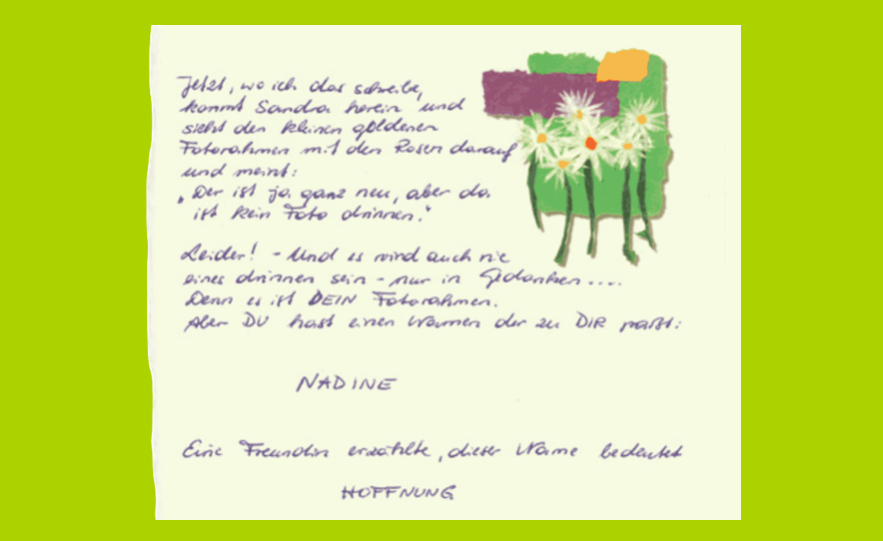 Jetzt, wo ich das schreibe,
kommt Sandra herein und
sieht den kleinen goldenen
Fotorahmen mit den Rosen darauf
und meint:
„Der ist ja ganz neu, aber da
ist kein Foto drinnen."
Leider! - Und es wird auch nie
eines drinnen sein - nur in Gedanken....
Denn es ist DEIN Fotorahmen.
Aber DU hast einen Namen der zu DIR paßt:
NADINE
Eine Freundin erzählte, dieser Name bedeutet
HOFFNUNG